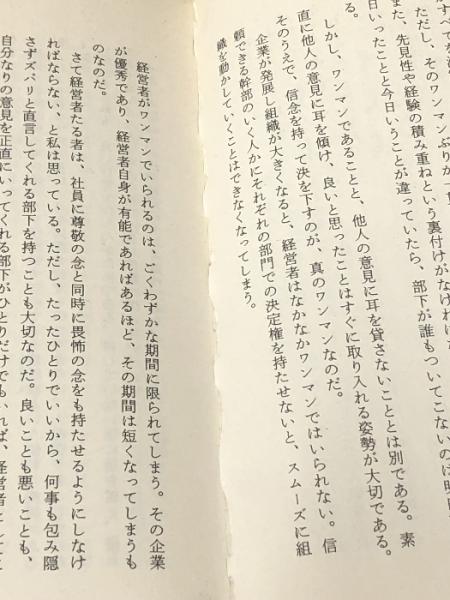 ただし、そのワンマンぶりが一貫
また、先見性や経験の積み重ねという裏付けがなければ
日いったことと今日いうことが違っていたら、部下が誰もついてこないのは明
しかし、ワンマンであることと、他人の意見に耳を貸さないこととは別である。素
直に他人の意見に耳を傾け、良いと思ったことはすぐに取り入れる姿勢が大切である。
そのうえで、信念を持って決を下すのが、真のワンマンなのだ。
企業が発展し組織が大きくなると、経営者はなかなかワンマンではいられない。信
頼できる幹部のいく人かにそれぞれの部門での決定権を持たせないと、スムーズに組
織を動かしていくことはできなくなってしまう。
経営者がワンマンでいられるのは、ごくわずかな期間に限られてしまう。その企業
が優秀であり、経営者自身が有能であればあるほど、その期間は短くなってしまうも
のなのだ。
さて経営者たる者は、社員に尊敬の念と同時に畏怖の念をも持たせるようにしなけ
ればならない、と私は思っている。ただし、たったひとりでいいから、何事も包み隠
さずズバリと直言してくれる部下を持つことも大切なのだ。良いことも悪いことも、
自分なりの意見を正直にいってくれる部下がひとりだけでもいれば、経営者として